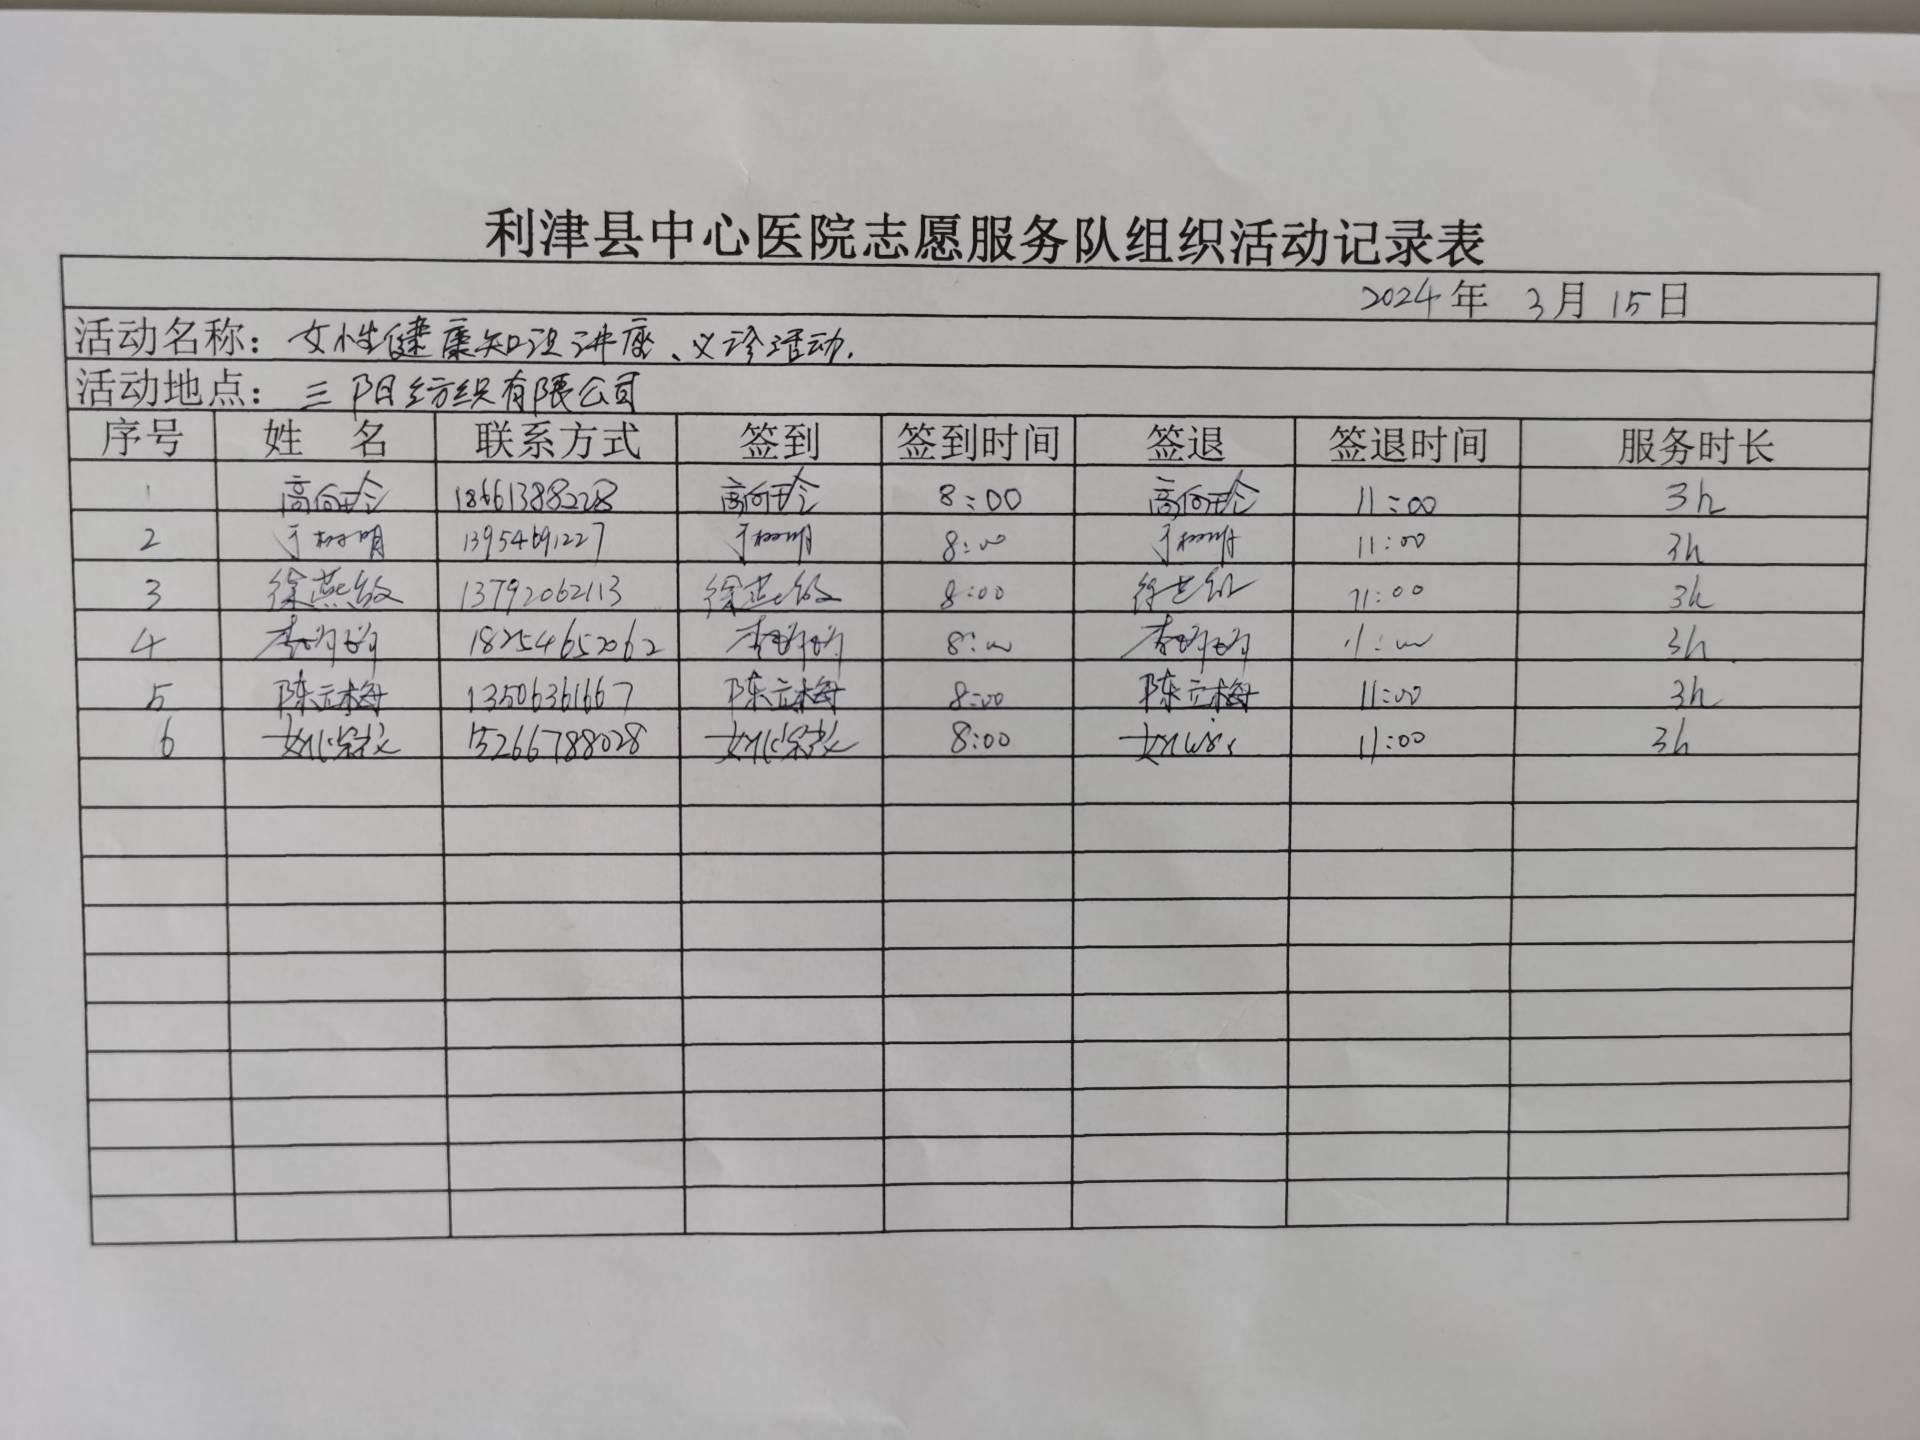 利津县中心医院志愿服务队组织活动记录表
2024年 3月 15日
活动名称：女性健康知识讲座、义诊活动.
活动地点：三阳纺织有限公司
序号 姓 名 联系方式 签到 签到时间 签退 签退时间 服务时长
1 高向玲 18661388228 高向玲 8:00 高向玲 11:00 3h
2 明 13954691227 明 8:00 明 11:00 3h
3 徐燕敏 13792062113 徐燕敏 8:00 徐燕敏 11:00 3h
4 李 18254652062 李 8:00 李 11:00 3h
5 陈立梅 13506361667 陈立梅 8:00 陈立梅 11:00 3h
6 15266788028 8:00 11:00 3h